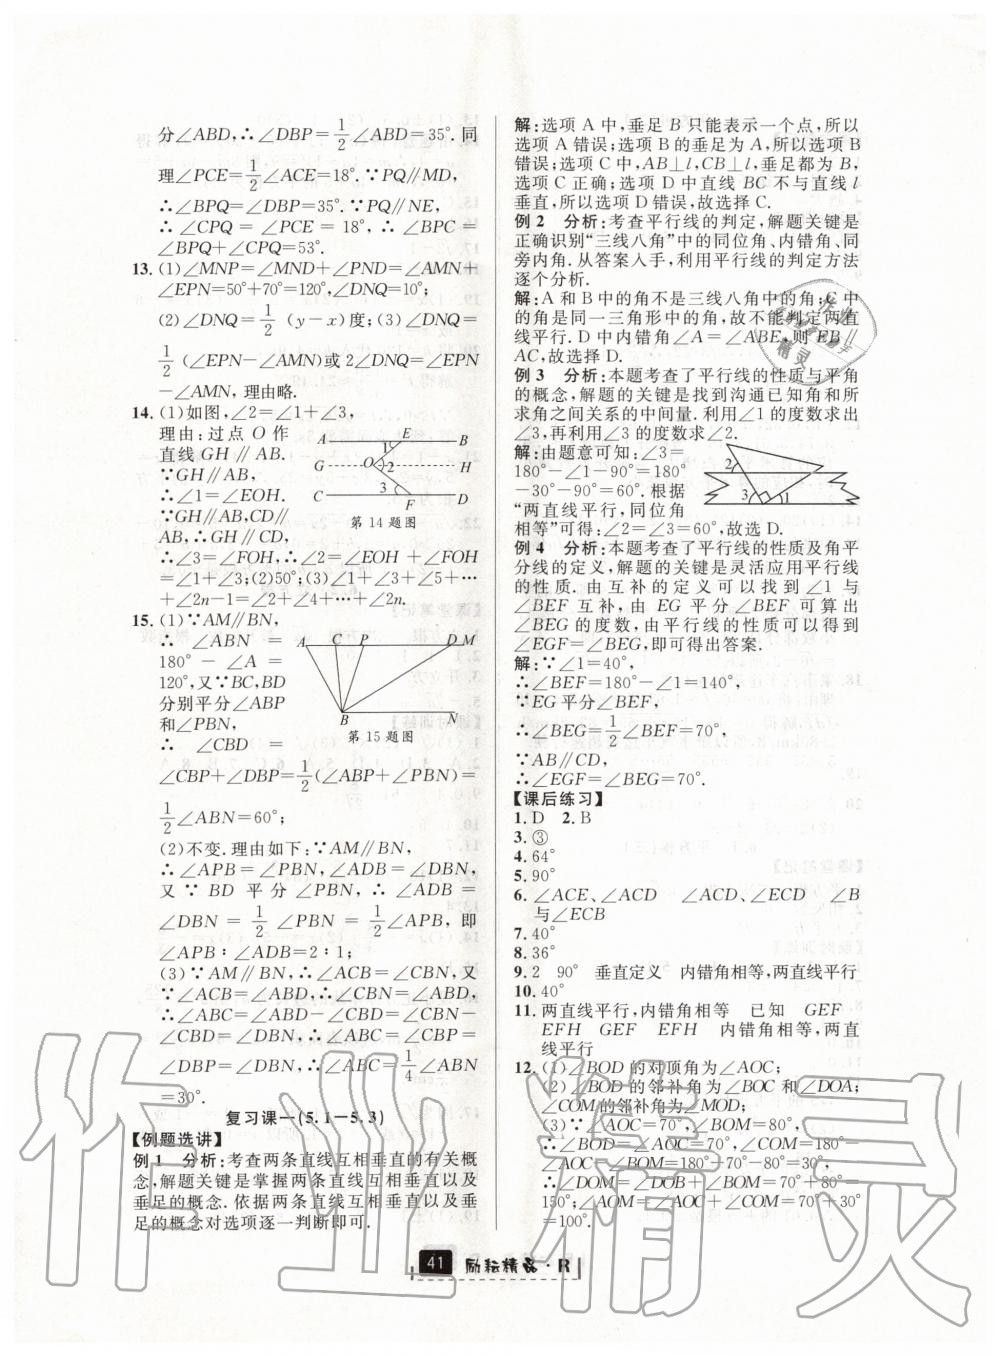 分∠ABD,∴∠DBP=1/2∠ABD=35°.同
理∠PCE=1/2∠ACE=18°.∵PQ∥MD,
∴∠BPQ=∠DBP=35°.∵PQ∥NE,
∴∠CPQ=∠PCE=18°,∴∠BPC=
∠BPQ+∠CPQ=53°.
13.(1)∠MNP=∠MND+∠PND=∠AMN+
∠EPN=50°+70°=120°,∠DNQ=10°;
(2)∠DNQ=1/2(y-x)度;(3)∠DNQ=
1/2(∠EPN-∠AMN)或2∠DNQ=∠EPN
-∠AMN,理由略.
14.(1)如图,∠2=∠1+∠3,
理由:过点O作
直线GH∥AB.
∵GH∥AB,
∴∠1=∠EOH.
∵GH∥AB,CD∥
AB,∴GH∥CD,
A E B
G O H
1 2 3
C F D
第14题图
∴∠3=∠FOH,∴∠2=∠EOH+∠FOH
=∠1+∠3;(2)50°;(3)∠1+∠3+∠5+…
+∠2n-1=∠2+∠4+…+∠2n.
15.(1)∵AM∥BN,
∴∠ABN=
180°-∠A=
120°,又∵BC,BD
分别平分∠ABP
和∠PBN,
A C P D M
B N
第15题图
∴∠CBD=
∠CBP+∠DBP=1/2(∠ABP+∠PBN)=
1/2∠ABN=60°;
(2)不变.理由如下:∵AM∥BN,
∴∠APB=∠PBN,∠ADB=∠DBN,
又∵BD平分∠PBN,∴∠ADB=
∠DBN=1/2∠PBN=1/2∠APB,即
∠APB∶∠ADB=2∶1;
(3)∵AM∥BN,∴∠ACB=∠CBN,又
∵∠ACB=∠ABD,∴∠CBN=∠ABD,
∴∠ABC=∠ABD-∠CBD=∠CBN-
∠CBD=∠DBN,∴∠ABC=∠CBP=
∠DBP=∠DBN,∴∠ABC=1/4∠ABN
=30°.
复习课一(5.1-5.3)
【例题选讲】
例1 分析:考查两条直线互相垂直的有关概
念,解题关键是掌握两条直线互相垂直以及
垂足的概念.依据两条直线互相垂直以及垂
足的概念对选项逐一判断即可.
解:选项A中,垂足B只能表示一个点,所以
选项A错误;选项B的垂足为A,所以选项B
错误;选项C中,AB⊥l,CB⊥l,垂足都为B,
选项C正确;选项D中直线BC不与直线l
垂直,所以选项D错误,故选择C.
例2 分析:考查平行线的判定,解题关键是
正确识别“三线八角”中的同位角、内错角、同
旁内角.从答案入手,利用平行线的判定方法
逐个分析.
解:A和B中的角不是三线八角中的角;C中
的角是同一三角形中的角,故不能判定两直
线平行.D中内错角∠A=∠ABE,则EB∥
AC,故选择D.
例3 分析:本题考查了平行线的性质与平角
的概念,解题的关键是找到沟通已知角和所
求角之间关系的中间量.利用∠1的度数求出
∠3,再利用∠3的度数求∠2.
解:由题意可知:∠3=
180°-∠1-90°=180°
-30°-90°=60°.根据
“两直线平行,同位角
相等”可得:∠2=∠3=60°,故选D.
2 3 1
例4 分析:本题考查了平行线的性质及角平
分线的定义,解题的关键是灵活应用平行线
的性质.由互补的定义可以找到∠1与
∠BEF互补,由EG平分∠BEF可算出
∠BEG的度数,由平行线的性质可以得到
∠EGF=∠BEG,即可得出答案.
解:∵∠1=40°,
∴∠BEF=180°-∠1=140°,
∵EG平分∠BEF,
∴∠BEG=1/2∠BEF=70°,
∵AB∥CD,
∴∠EGF=∠BEG=70°.
【课后练习】
1.D 2.B
3.③
4.64°
5.90°
6.∠ACE、∠ACD ∠ACD、∠ECD ∠B
与∠ECB
7.40°
8.36°
9.2 90° 垂直定义 内错角相等,两直线平行
10.40°
11.两直线平行,内错角相等 已知 GEF
EFH GEF EFH 内错角相等,两直
线平行
12.(1)∠BOD的对顶角为∠AOC;
(2)∠BOD的邻补角为∠BOC和∠DOA,
∠COM的邻补角为∠MOD;
(3)∵∠AOC=70°,∠BOM=80°,
∴∠BOD=∠AOC=70°,∠COM=180°-
∠AOC-∠BOM=180°-70°-80°=30°,
∴∠DOM=∠DOB+∠BOM=70°+80°=
150°;∠AOM=∠AOC+∠COM=70°+30°
=100°.
41 励耘精品·R
作业精灵